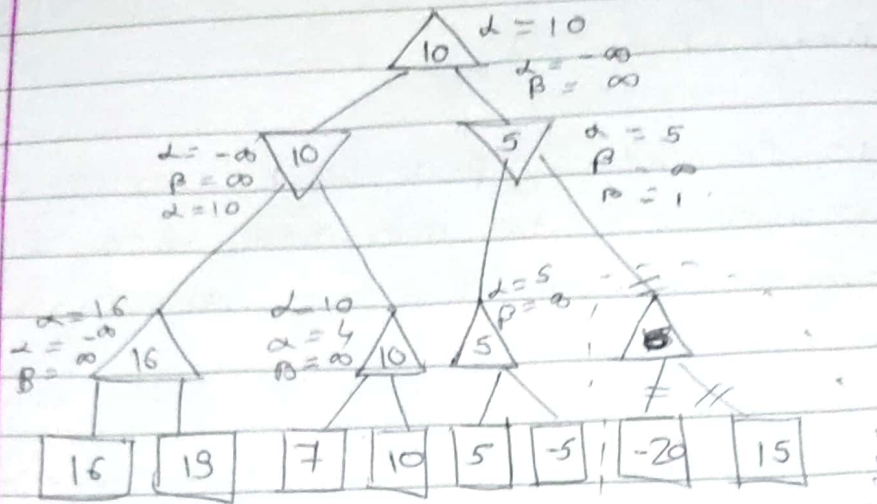 α = 10
10
α = -∞
β = ∞
α = -∞
β = ∞
α = 10
10
5
α = 5
β = ∞
β = 1
α = 16
α = -∞
β = ∞
16
α = 10
α = 4
β = ∞
10
α = 5
β = ∞
5
16 19 7 10 5 -5 -20 15